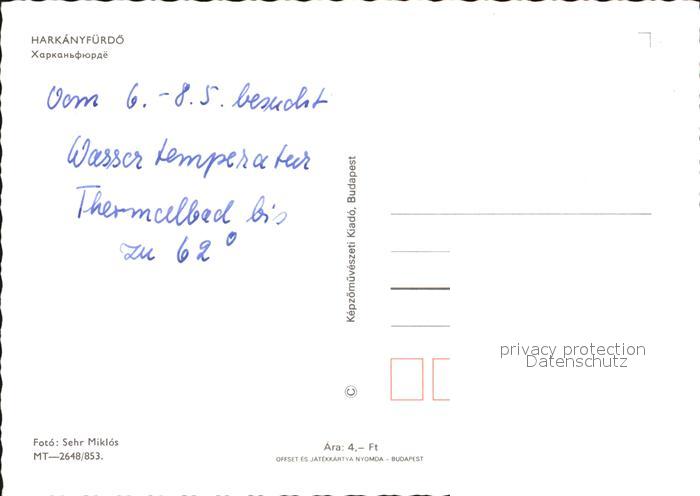 HARKÁNYFÜRDŐ
Харканьфюрдё
Vom 6.-8.5. besucht
Wassertemperatur
Thermalbad bis
zu 62°
Képzőművészeti Kiadó, Budapest
©
privacy protection
Datenschutz
Fotó: Sehr Miklós
MT—2648/853.
Ára: 4,– Ft
OFFSET ÉS JÁTÉKKÁRTYA NYOMDA – BUDAPEST